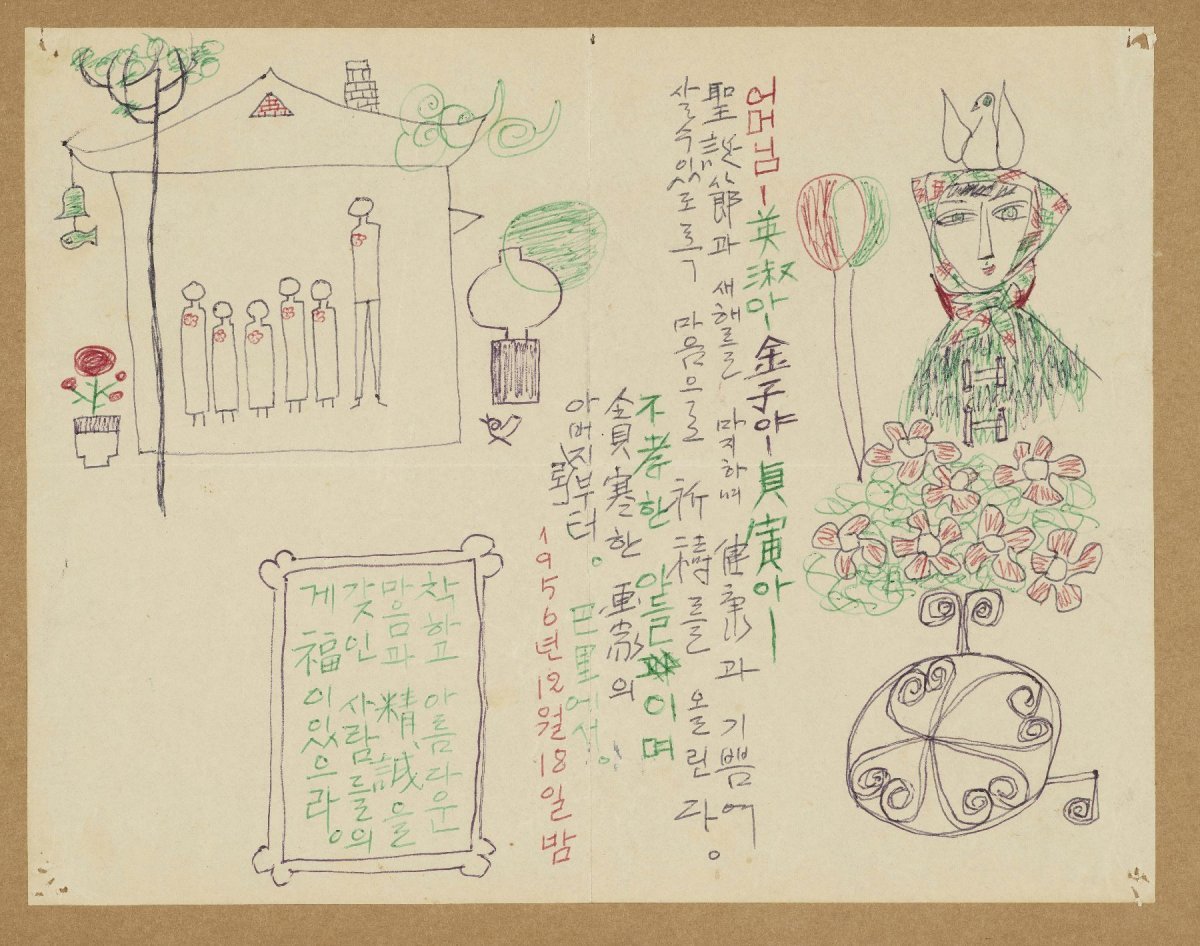 어머님ー英淑아ー金子야ー貞寅아ー
聖誕節과 새해를 마지하며 健康과 기쁨에
살 수 있도록 마음으로 祈禱를 올린다。
不孝한 아들이며
貧寒한 画家의
아버지로부터。 巴里에서。
1956년 12월 18일 밤
착하고 아름다운
마음과 精誠을
갖인 사람들의
게 福이 있으라。